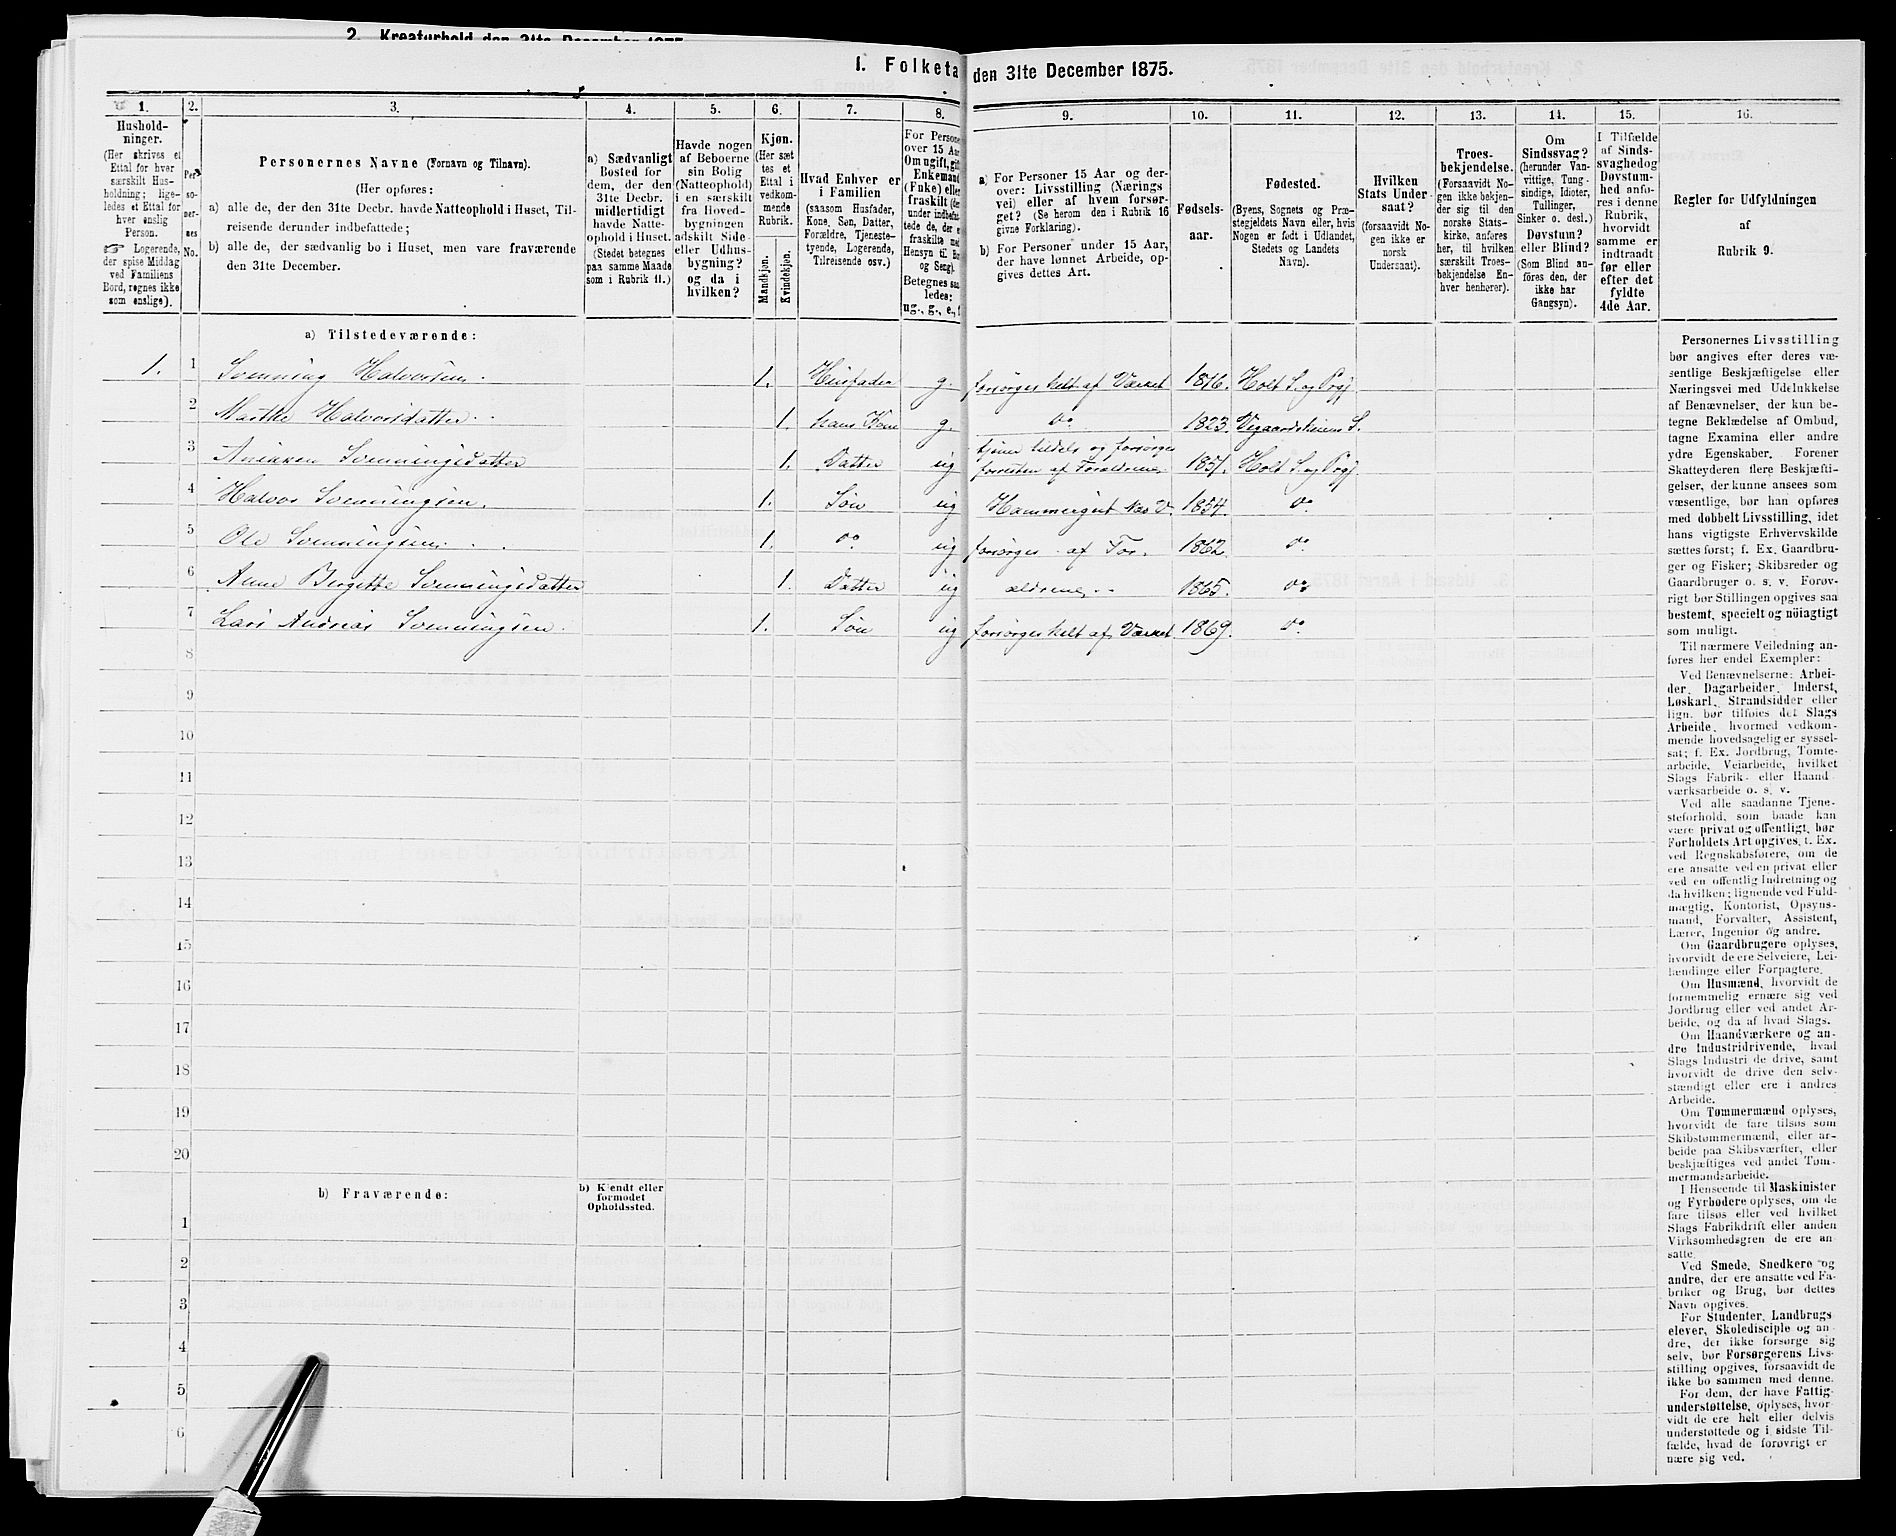 2. Kreaturhold den 31te December 1875
1. Folketa den 31te December 1875.
1.
Hushold-
ninger.
(Her skrives et
Ettal for hver
særskilt Hus-
holdning; lige-
ledes et Ettal for
hver enslig
Person.
☞ Logerende,
der spise Middag
ved Familiens
Bord, regnes ikke
som enslige).
2.
Per-
so-
ner-
nes
No.
3.
Personernes Navne (Fornavn og Tilnavn).
(Her opføres:
a) alle de, der den 31te Decbr. havde Natteophold i Huset, Til-
reisende derunder indbefattede;
b) alle de, der sædvanlig bo i Huset, men vare fraværende
den 31te December.
4.
a) Sædvanligt
Bosted for
dem, der den
31te Decbr.
midlertidigt
havde Natte-
ophold i Huset.
(Stedet betegnes
paa samme Maade
som i Rubrik 11.)
5.
Havde nogen
af Beboerne
sin Bolig
(Natteophold)
i en særskilt
fra Hoved-
bygningen
adskilt Side-
eller Udhus-
bygning?
og da i
hvilken?
6.
Kjøn.
(Her sæt
tes et
Ettal i
vedkom-
mende
Rubrik.
Mandkjøn.
Kvindekjøn.
7.
Hvad Enhver er
i Familien
(saasom Husfader,
Kone, Søn, Datter,
Forældre, Tjeneste-
tyende, Logerende,
Tilreisende osv.)
8.
For Persone
over 15 Aa
Om ugift, gif
Enkemand
(Enke) elle
fraskilt (der
under indbefat
tede de, der
fraskilte med
Hensyn til Bo
og Seng).
Betegnes saa
ledes:
ug., g., e., f
9.
a) For Personer 15 Aar og der-
over: Livsstilling (Nærings
vei) eller af hvem forsør-
get? (Se herom den i Rubrik 16
givne Forklaring).
b) For Personer under 15 Aar,
der have lønnet Arbeide, op-
gives dettes Art.
10.
Fødsels-
aar.
11.
Fødested.
(Byens, Sognets og Præ-
stegjeldets Navn eller, hvis
Nogen er født i Udlandet,
Stedets og Landets
Navn).
12.
Hvilken
Stats Under-
saat?
(forsaavidt No-
gen ikke er
norsk
Undersaat).
13.
Troes-
bekjendelse.
(Forsaavidt No-
gen ikke bekjen-
der sig til den
norske Stats-
kirke, anføres
her, til hvilken
særskilt Troes-
bekjendelse En-
hver henhører).
14.
Om
Sindssvag?
(herunder Van-
vittige, Tung-
sindige, Idioter,
Tullinger,
Sinker o. desl.)
Døvstum?
eller Blind?
(Som Blind an-
føres den, der
ikke har
Gangsyn).
15.
I Tilfælde
af Sinds-
svaghed og
Døvstum-
hed anfø-
res i denne
Rubrik,
hvorvidt
samme er
indtraadt
før eller
efter det
fyldte
4de Aar.
16.
Regler for Udfyldningen
af
Rubrik 9.
a) Tilstedeværende:
1. 1 Svenning Halvorsen. 1. Husfader g. forsørges helt af Værket 1816. Holt S. og Prgj
2 Marthe Halvorsdatter 1. hans Kone g. do 1823. Vegaardsheiens S.
3 Anikken Svenningsdatter 1. Datter ug tjener tildels og forsørges
forresten af Forældrene 1851. Holt S. og Prgj.
4 Halvor Svenningsen. 1. Søn ug Hammergut Næs V. 1854. do
5 Ole Svenningsen 1. do ug forsørges af For- 1862. do
6 Anne Bergette Svenningsdatter 1. Datter ug ældrene 1865. do
7 Lars Andreas Svenningsen. 1. Søn ug forsørges helt af Værket 1869. do
8
9
10
11
12
13
14
15
16
17
18
19
20
b) Fraværende:
b) Kjendt eller
formodet
Opholdssted.
1
2
3
4
5
6
Personernes Livsstilling
bør angives efter deres væ-
sentlige Beskjæftigelse eller
Næringsvei med Udelukkelse
af Benævnelser, der kun be-
tegne Beklædelse af Ombud,
tagne Examina eller andre
ydre Egenskaber. Forener
Skatteyderen flere Beskjæfti-
gelser, der kunne ansees som
væsentlige, bør han opføres
med dobbelt Livsstilling, idet
hans vigtigste Erhvervskilde
sættes først; f. Ex. Gaardbru-
ger og Fisker; Skibsreder og
Gaardbruger o. s. v. Forøv-
rigt bør Stillingen opgives saa
bestemt, specielt og nöiagtigt
som muligt.
Til nærmere Veiledning an-
føres her endel Exempler:
Ved Benævnelserne: Arbei-
der, Dagarbeider, Inderst,
Løskarl, Strandsidder eller
lign. bør tilføies det Slags
Arbeide, hvormed vedkom-
mende hovedsagelig er syssel-
sat; f. Ex. Jordbrug, Tomte-
arbeide, Veiarbeide, hvilket
Slags Fabrik- eller Haand-
værksarbeide o. s. v.
Ved alle saadanne Tjene-
steforhold, som baade kan
være privat og offentligt, bør
Forholdets Art opgives, t. Ex.
ved Regnskabsførere, om de
ere ansatte ved en privat eller
ved en offentlig Indretning og
da hvilken; lignende ved Fuld-
mægtig, Kontorist, Opsyns-
mand, Forvalter, Assistent,
Lærer, Ingeniør og andre.
Om Gaardbrugere oplyses,
hvorvidt de ere Selveiere, Lei-
lændinge eller Forpagtere.
Om Husmænd, hvorvidt de
fornemmelig ernære sig ved
Jordbrug eller ved andet Ar-
beide, og da af hvad Slags.
Om Haandværkere og an-
dre Industridrivende, hvad
Slags Industri de drive, samt
hvorvidt de drive den selv-
stændigt eller ere i andres
Arbeide.
Om Tømmermænd oplyses,
hvorvidt de fare tilsøs som
Skibstømmermænd, eller ar-
beide paa Skibsværfter, eller
beskjæftiges ved andet Tøm-
mermandsarbeide.
I Henseende til Maskinister
og Fyrbødere oplyses, om de
fare tilsøs eller ved hvilket
Slags Fabrikdrift eller anden
Virksomhedsgren de ere an-
satte.
Ved Smede, Snedkere og
andre, der ere ansatte ved Fa-
briker og Brug, bør dettes
Navn opgives.
For Studenter, Landbrugs
elever, Skoledisciple og an-
dre, der ikke forsørge sig
selv, bør Forsørgerens Livs-
stilling opgives, forsaavidt de
ikke bo sammen med denne.
For dem, der have Fattig-
understøttelse, oplyses, hvor-
vidt de ere helt eller delvis
understøttede og i sidste Til-
fælde, hvad de forøvrigt er
nære sig ved.